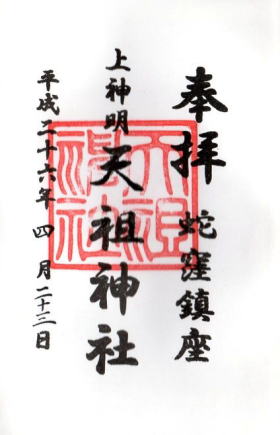 奉拝
蛇窪鎮座
上神明
天祖神社
平成二十六年四月二十三日
天祖神社